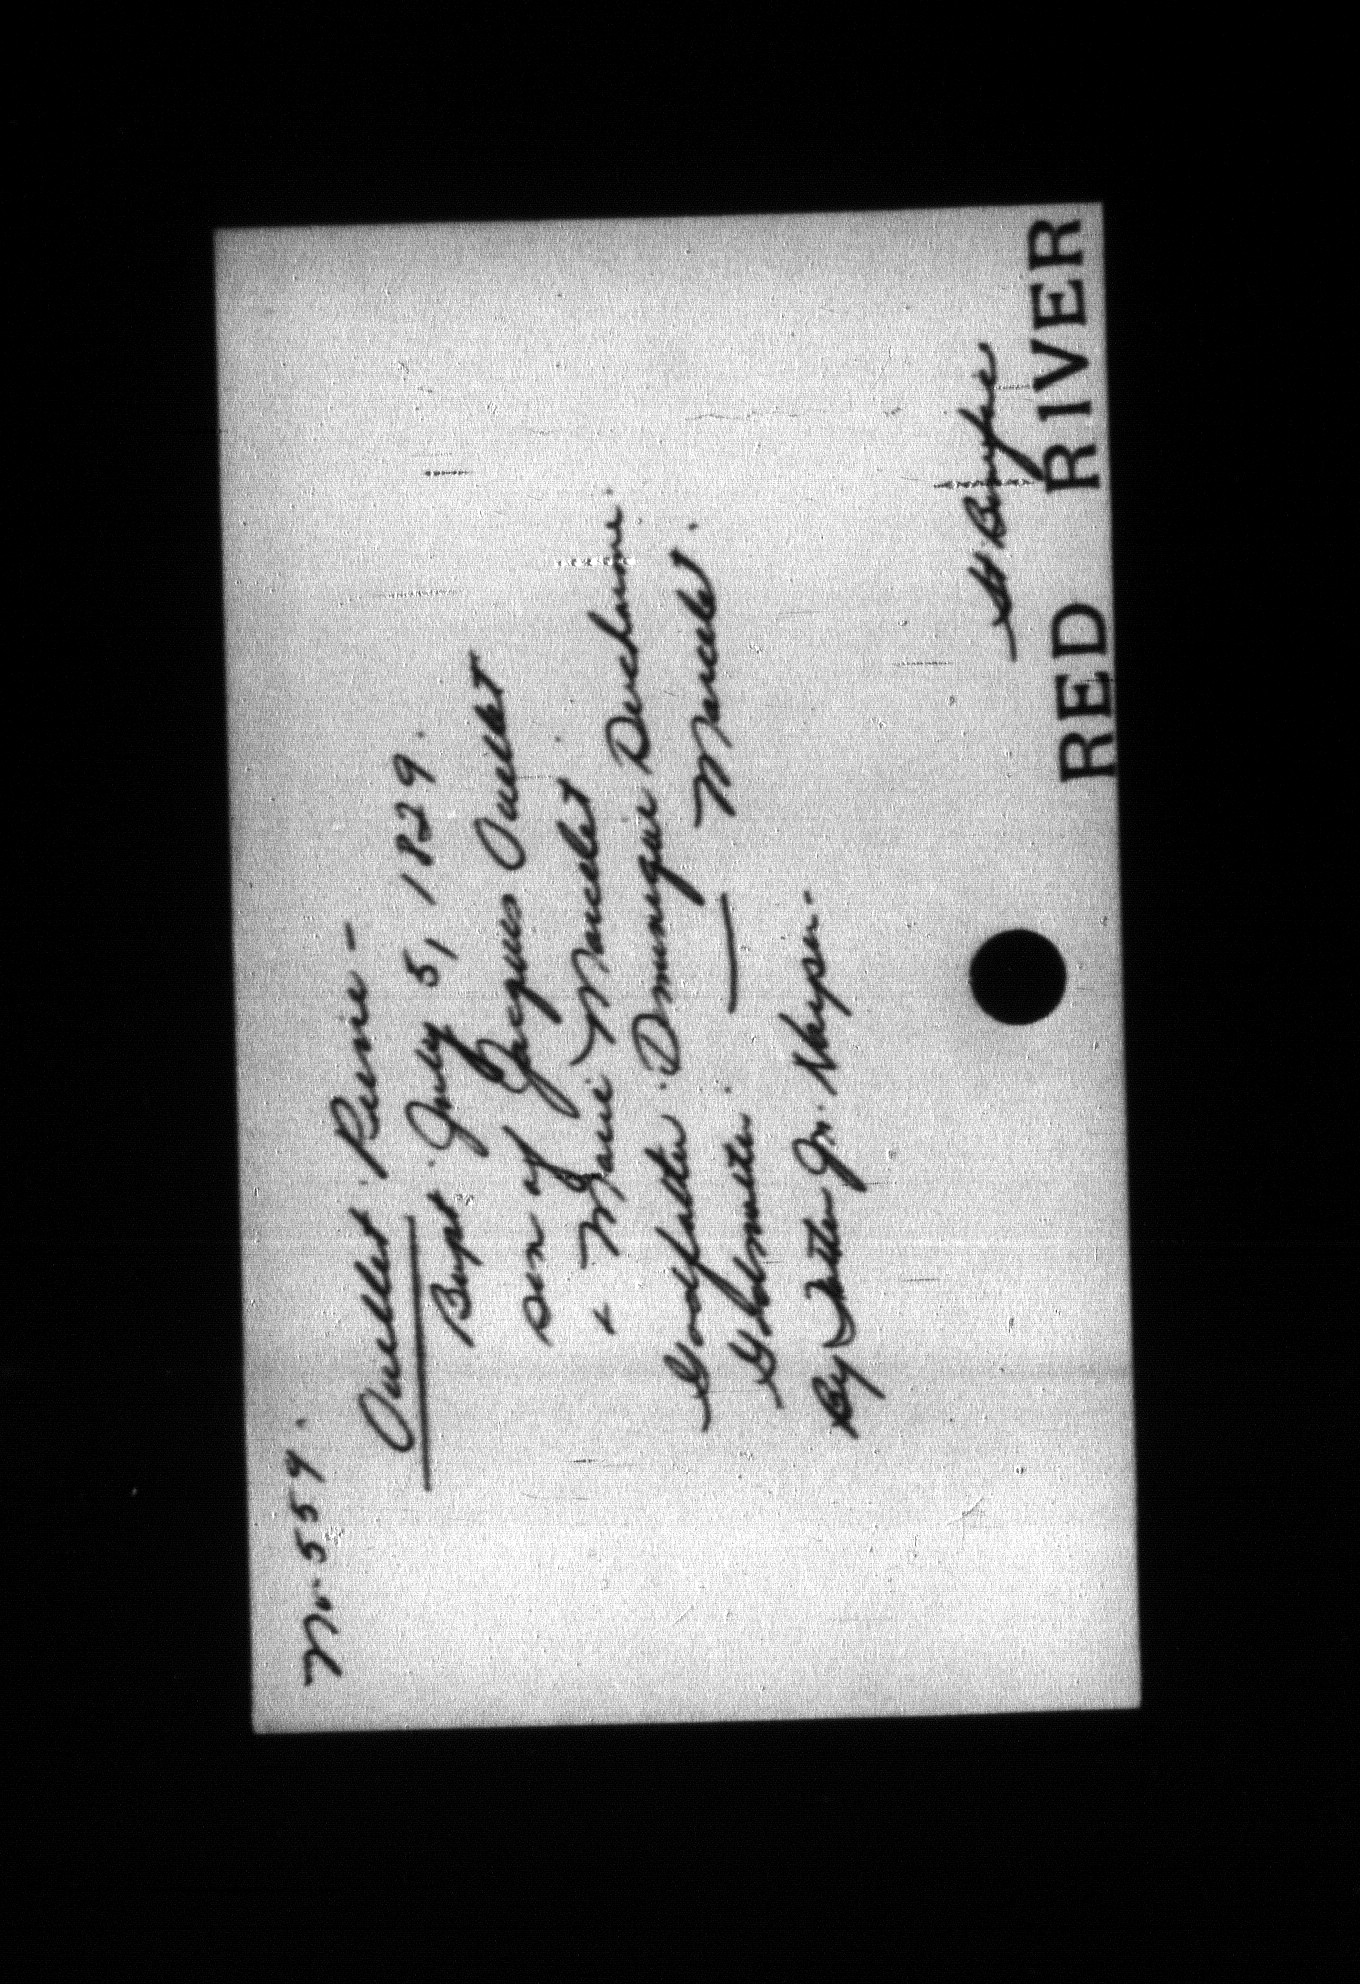 No. 559.
Ouellet. Pierre -
Bapt. July 5, 1829.
Son of Jacques Ouellet
+ Marie Marcelet
Godfather. Dominique Ducharme.
Godmother. — Marcelet.
By Father Jn. Harper.
St Boniface
RED RIVER